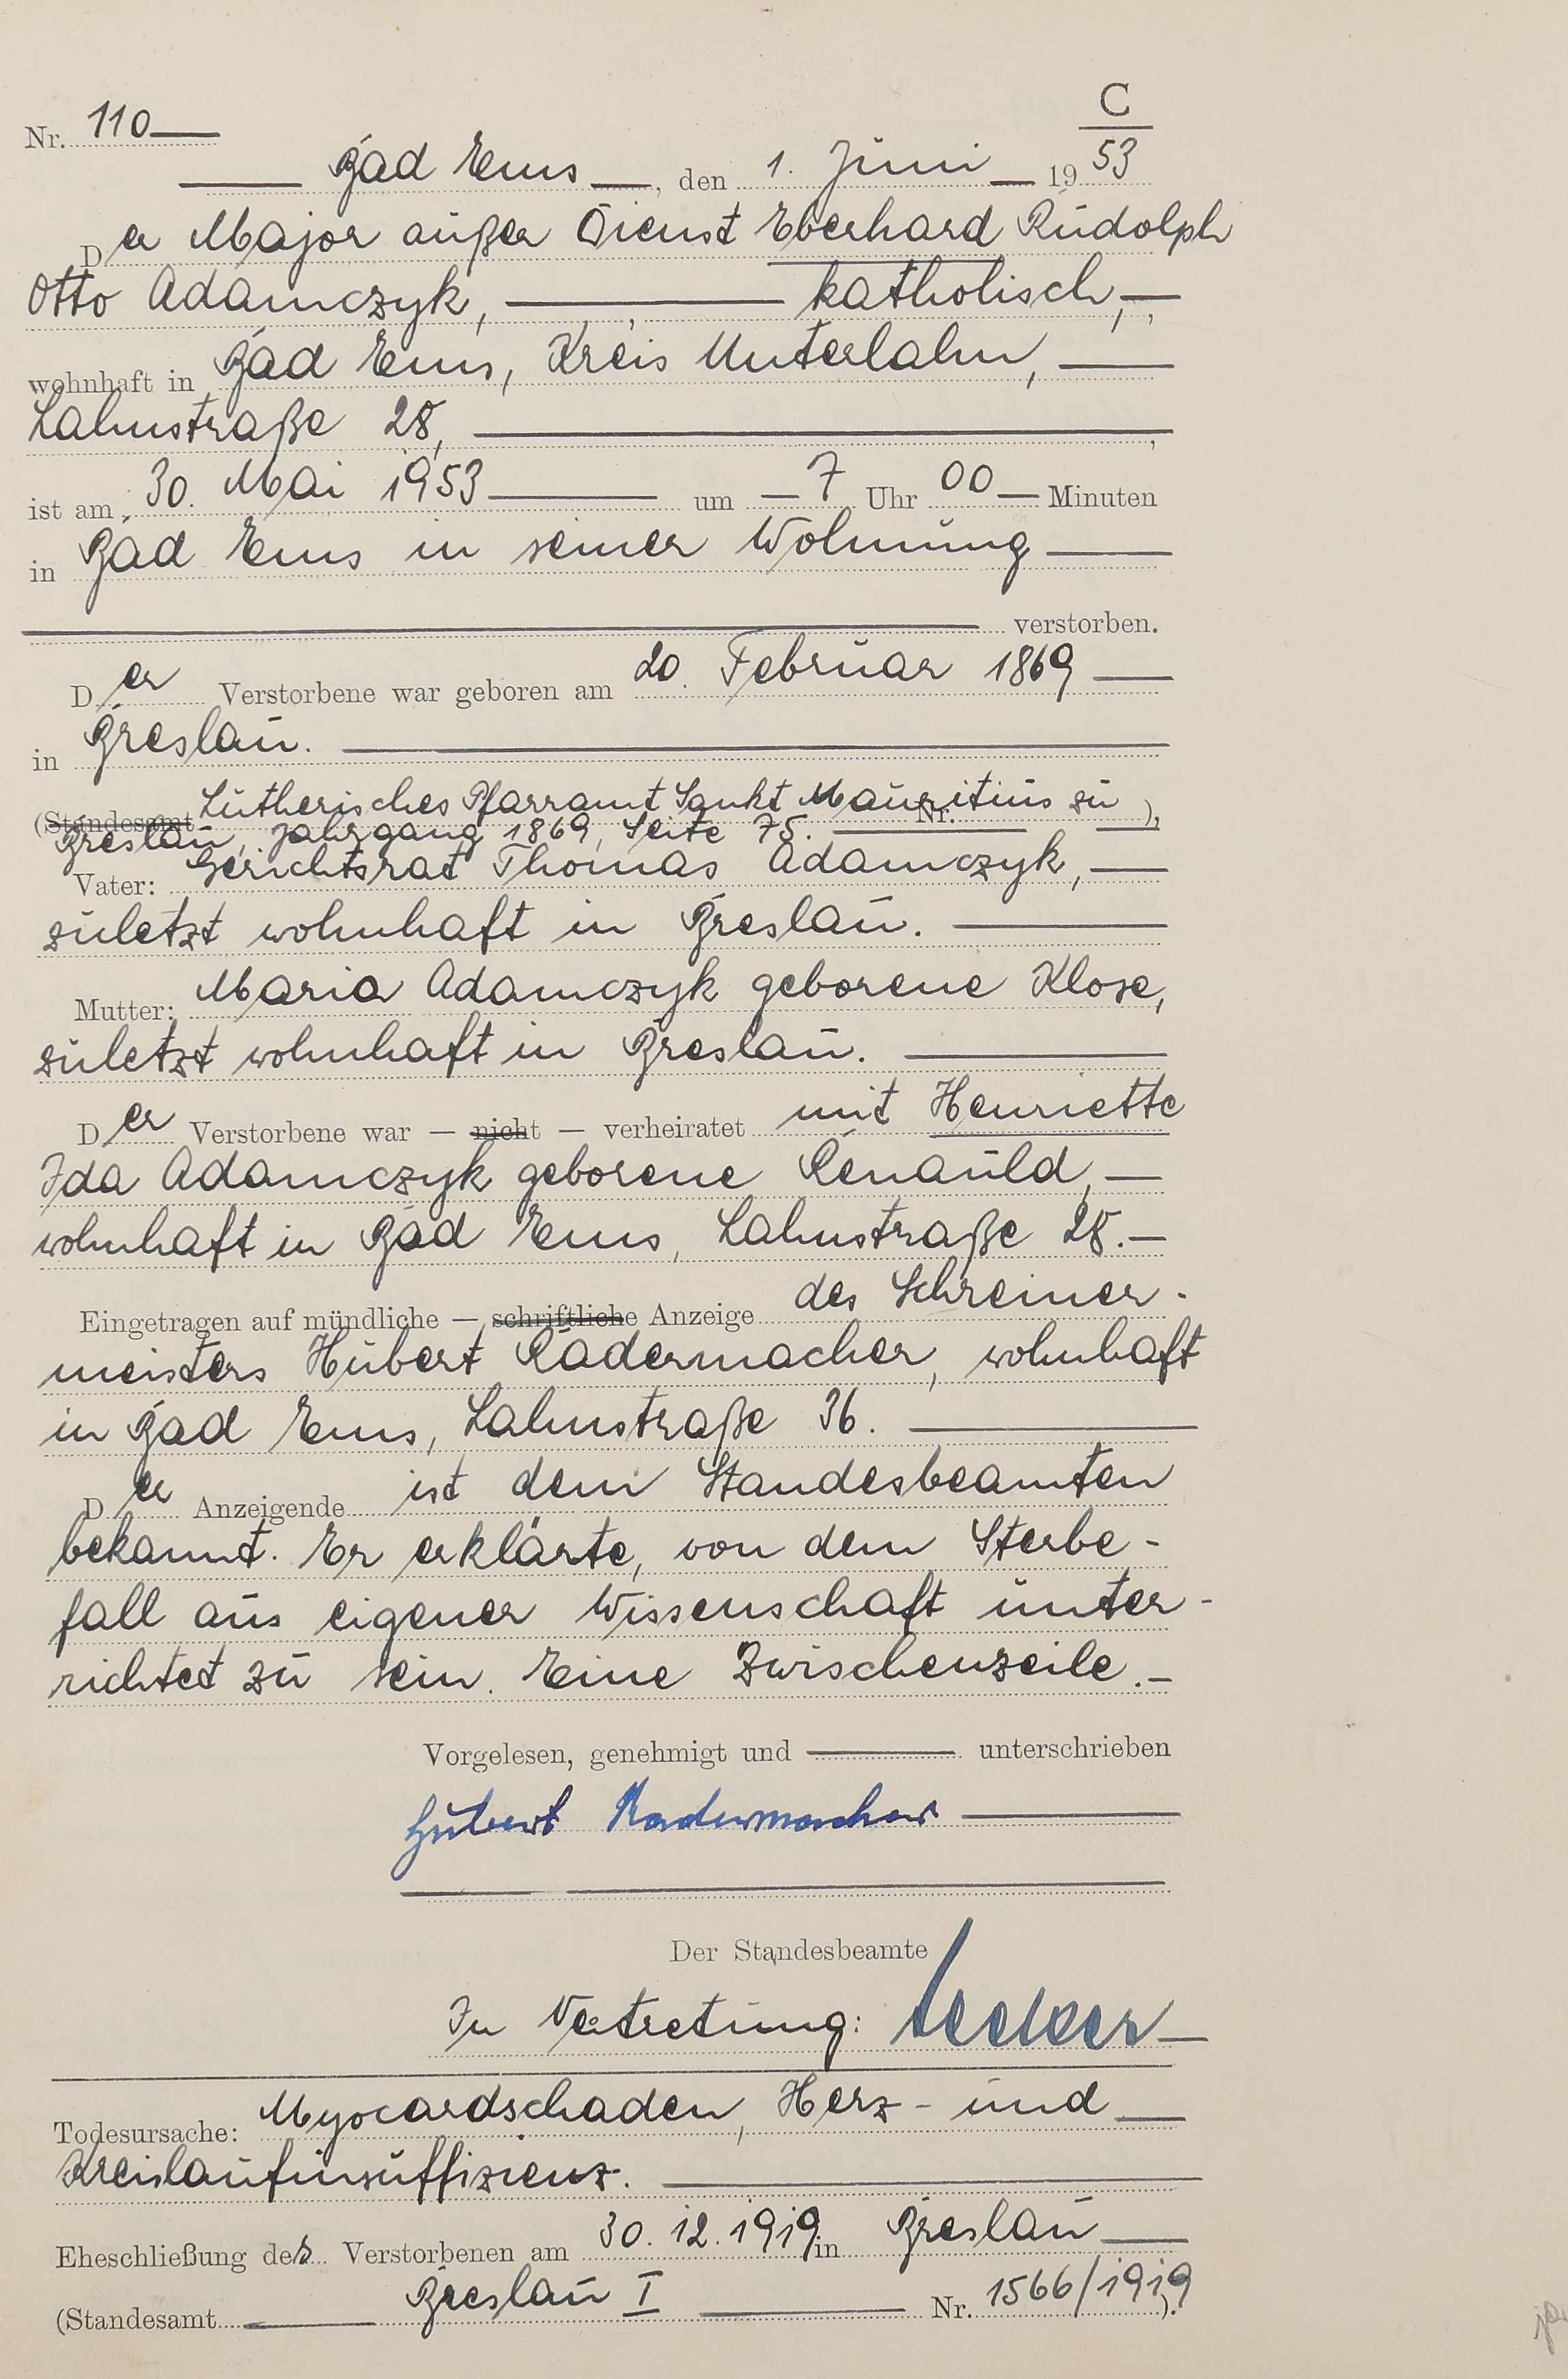 C
Nr. 110
Bad Ems, den 1. Juni 1953
Der Major außer Dienst Eberhard Rudolph
Otto Adamczyk, katholisch,
wohnhaft in Bad Ems, Kreis Unterlahn,
Lahnstraße 28,
ist am 30. Mai 1953 um 7 Uhr 00 Minuten
in Bad Ems in seiner Wohnung
verstorben.
Der Verstorbene war geboren am 20. Februar 1869
in Breslau.
(Standesamt Lutherisches Pfarramt Sankt Mauritius zu Nr. ),
Breslau, Jahrgang 1869, Seite 75.
Vater: Gerichtsrat Thomas Adamczyk,
zuletzt wohnhaft in Breslau.
Mutter: Maria Adamczyk geborene Klose,
zuletzt wohnhaft in Breslau.
Der Verstorbene war — nicht — verheiratet mit Henriette
Ida Adamczyk geborene Renauld,
wohnhaft in Bad Ems, Lahnstraße 28.
Eingetragen auf mündliche — schriftliche Anzeige des Schreiner-
meisters Hubert Radermacher, wohnhaft
in Bad Ems, Lahnstraße 36.
Der Anzeigende ist dem Standesbeamten
bekannt. Er erklärte, von dem Sterbe-
fall aus eigener Wissenschaft unter-
richtet zu sein. Eine Zwischenzeile.
Vorgelesen, genehmigt und unterschrieben
Hubert Radermacher
Der Standesbeamte
In Vertretung:
Todesursache: Myocardschaden, Herz- und
Kreislaufinsuffizienz.
Eheschließung des Verstorbenen am 30.12.1919 in Breslau
(Standesamt Breslau I Nr. 1566/1919).